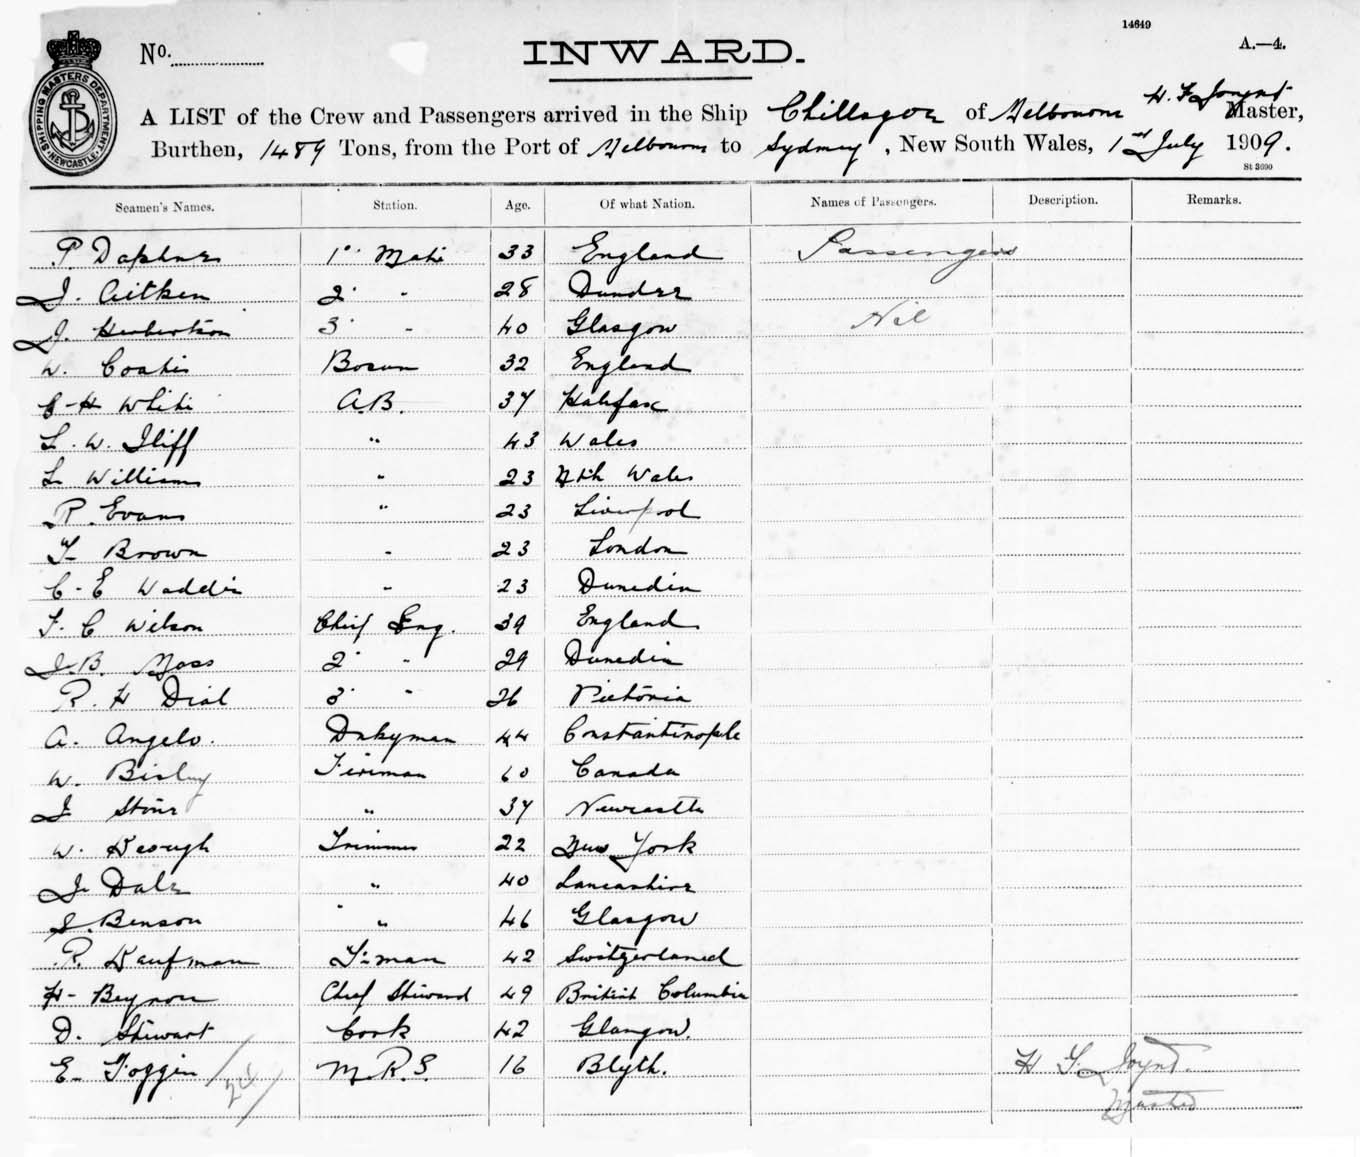 14649
No.
INWARD.
A.—4.
SHIPPING MASTERS DEPARTMENT NEWCASTLE
H. F. Joynt
A LIST of the Crew and Passengers arrived in the Ship Chillagoe of Melbourne Master,
Burthen, 1489 Tons, from the Port of Melbourne to Sydney, New South Wales, 1st July 1909.
St 3690
Seamen's Names. Station. Age. Of what Nation. Names of Passengers. Description. Remarks.
P. Daphne 1st Mate 33 England Passengers
J. Aitken 2 " 28 Dundee
J. Herbertson 3 " 40 Glasgow Nil
W. Coates Bosun 32 England
C H White A.B. 37 Halifax
L. W. Iliff " 43 Wales
L Williams " 23 Nth Wales
R. Evans " 23 Liverpool
T Brown " 23 London
C. E Waddie " 23 Dunedin
F. C Wilson Chief Eng. 39 England
J. B. Moss 2 " 29 Dunedin
R. H Dial 3 " 26 Victoria
A. Angelo. Dnkyman 44 Constantinople
W. Bisley Fireman 60 Canada
J " 37 Newcastle
W. Keough Trimmer 22 New York
J Dale " 40 Lancashire
S. Benson " 46 Glasgow
R. Kaufman F-man 42 Switzerland
H- Beynon Chief Steward 49 British Columbia
D. Stewart Cook 42 Glasgow.
E. Foggin 24 M.R.S. 16 Blyth. H F Joynt.
Master